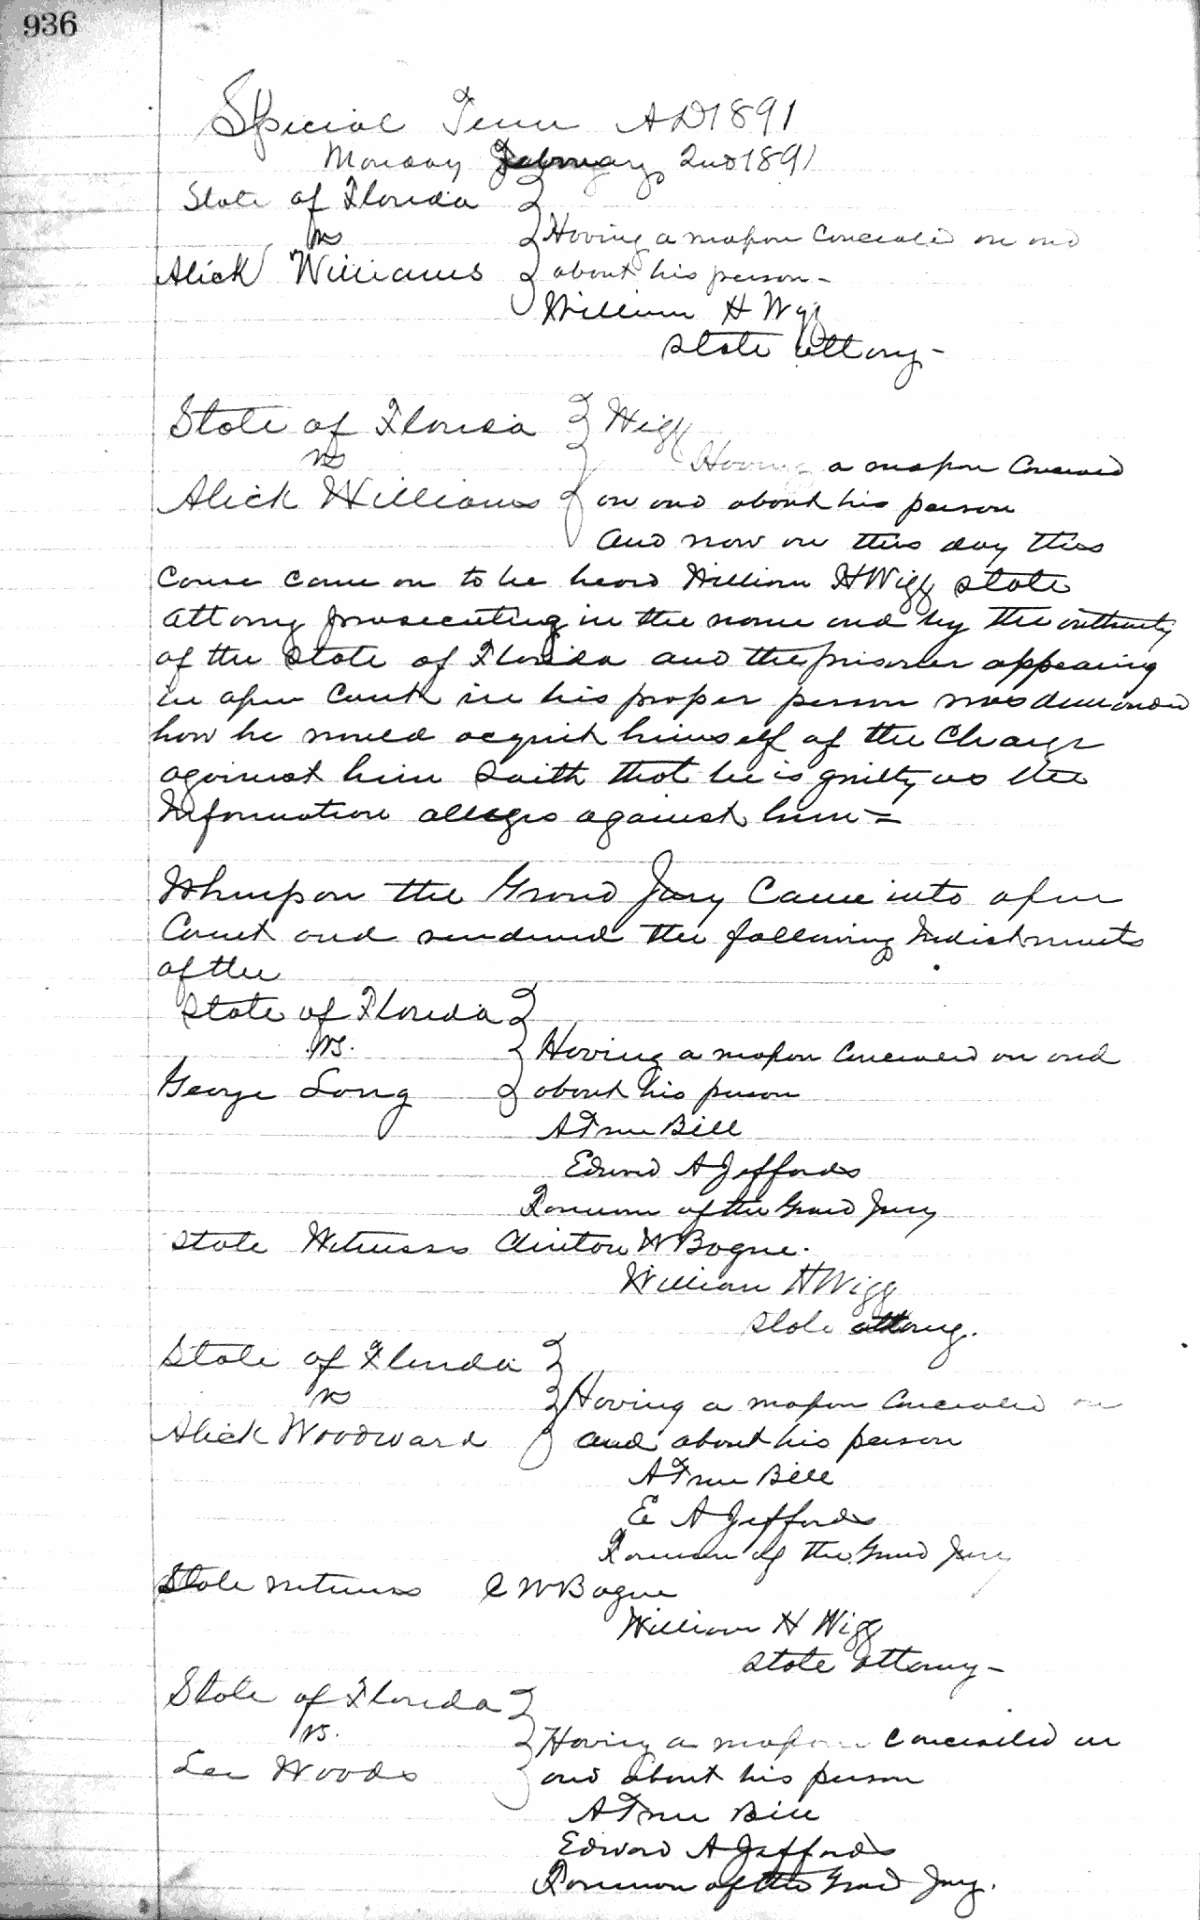 936
Special Term AD 1891
Monday February 2nd 1891
State of Florida
vs
Having a weapon concealed on and
Alick Williams
about his person -
William H Wigg
State Attorny -
State of Florida
Wigg
vs
Having a weapon Concealed
Alick Williams
on and about his person
And now on this day this
Cause came on to be heard William H Wigg State
Attorny prosecuting in the name and by the authority
of the State of Florida and the prisoner appearing
in open Court in his proper person was demanded
how he would acquit himself of the Charge
against him Saith that he is guilty as the
Information alleges against him =
Whereupon the Grand Jury Came into open
Court and rendered the following Indictments
of the
State of Florida
vs.
Having a weapon Concealed on and
George Long
about his person
A True Bill
Edward A Jeffords
Foreman of the Grand Jury
State Witness Clinton W Bogue.
William H Wigg
State Attorny.
State of Florida
vs
Having a weapon Concealed on
Alick Woodward
and about his person
A True Bill
E A Jeffords
Foreman of the Grand Jury
State witness C W Bogue
William H Wigg
State Attorny -
State of Florida
vs.
Having a weapon Concealed on
Lee Woods
and about his person
A True Bill
Edward A Jeffords
Foreman of the Grand Jury.